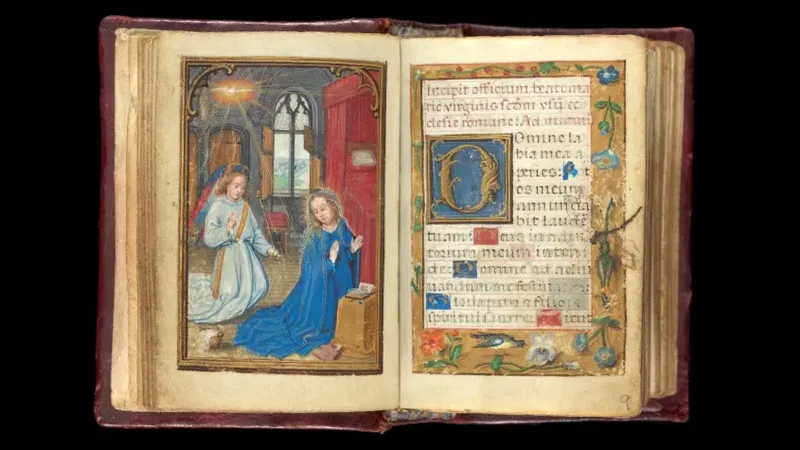 Incipit officium beatema
rie virginis scdm vsū ec
clesie romane: Ad
Domine la
bia mea a
peries: Et
os meum
annuncia
bit laudē
tuam: Deus in adiu
torium meum inten
de: Domine ad adiu
uandum me festina.
Gloria patri et filio et
spiritui sancto: Sicut
9